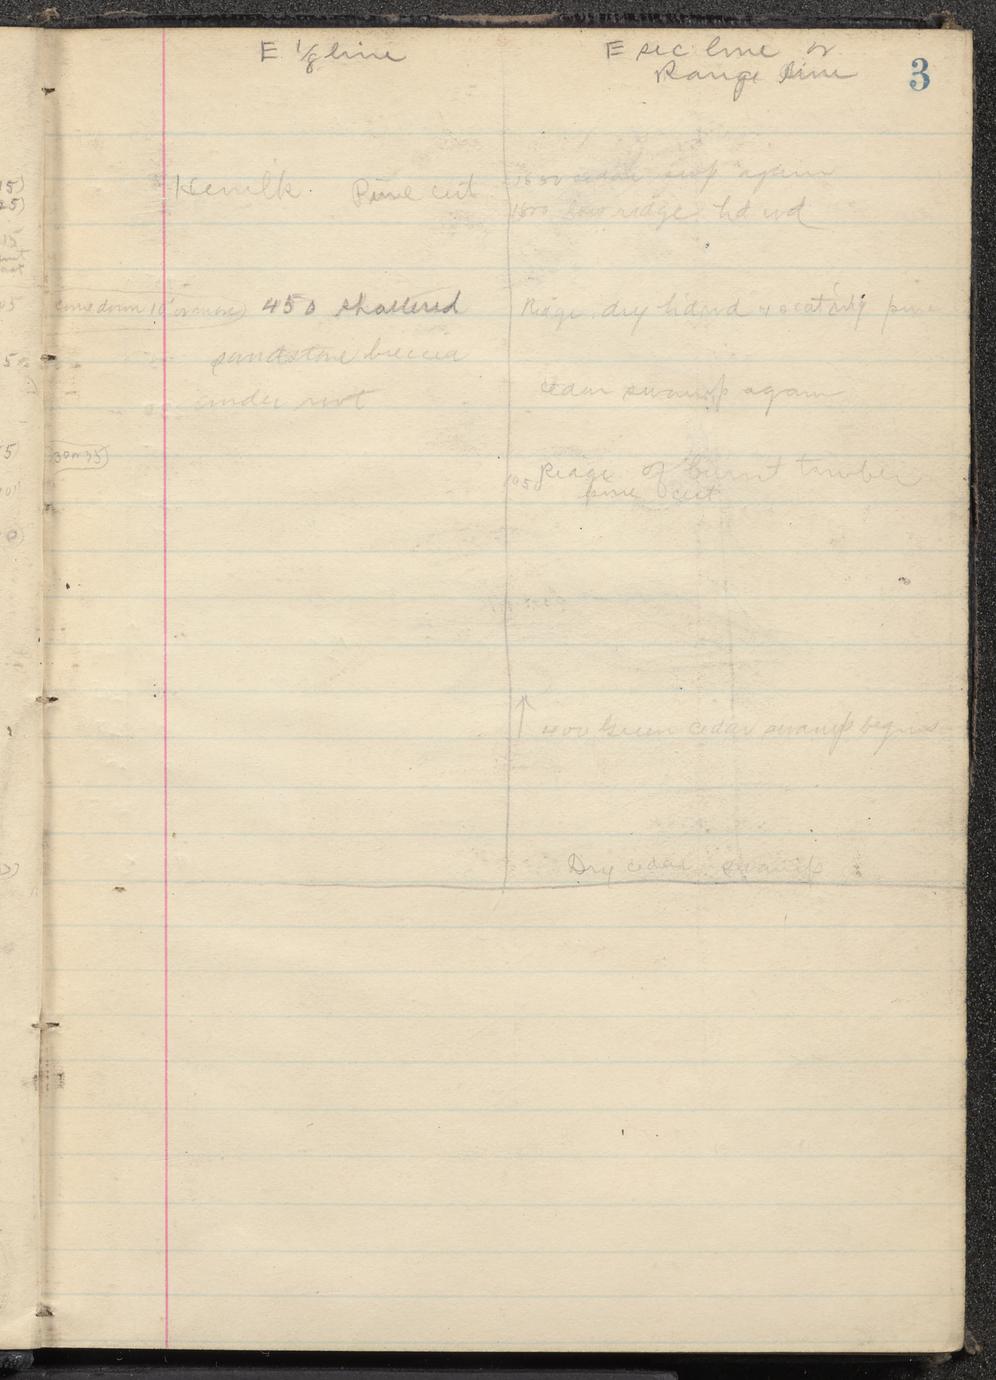 3
E 1/8 line
E sec line or
Range line
Pine cut
1650 cedar swp again
1600 low ridge hd wd
come down 10' or more) 450 shattered
sandstone breccia
under root
Ridge dry hdwd & scat'rg pine
cedar swamp again
30 N 75)
1050 Ridge of burnt timber
pine cut
↑ 400 Green cedar swamp begins
Dry cedar swamp